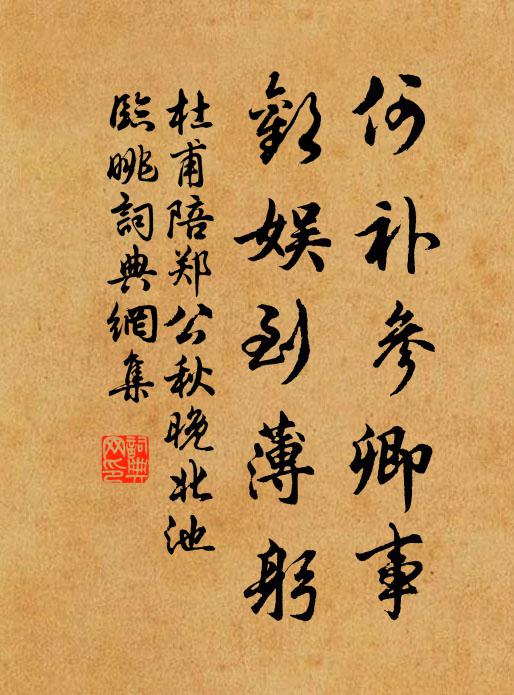 何补参卿事
欢娱到薄躬
杜甫陪郑公秋晚北池
临眺词典網集
詞典
网印